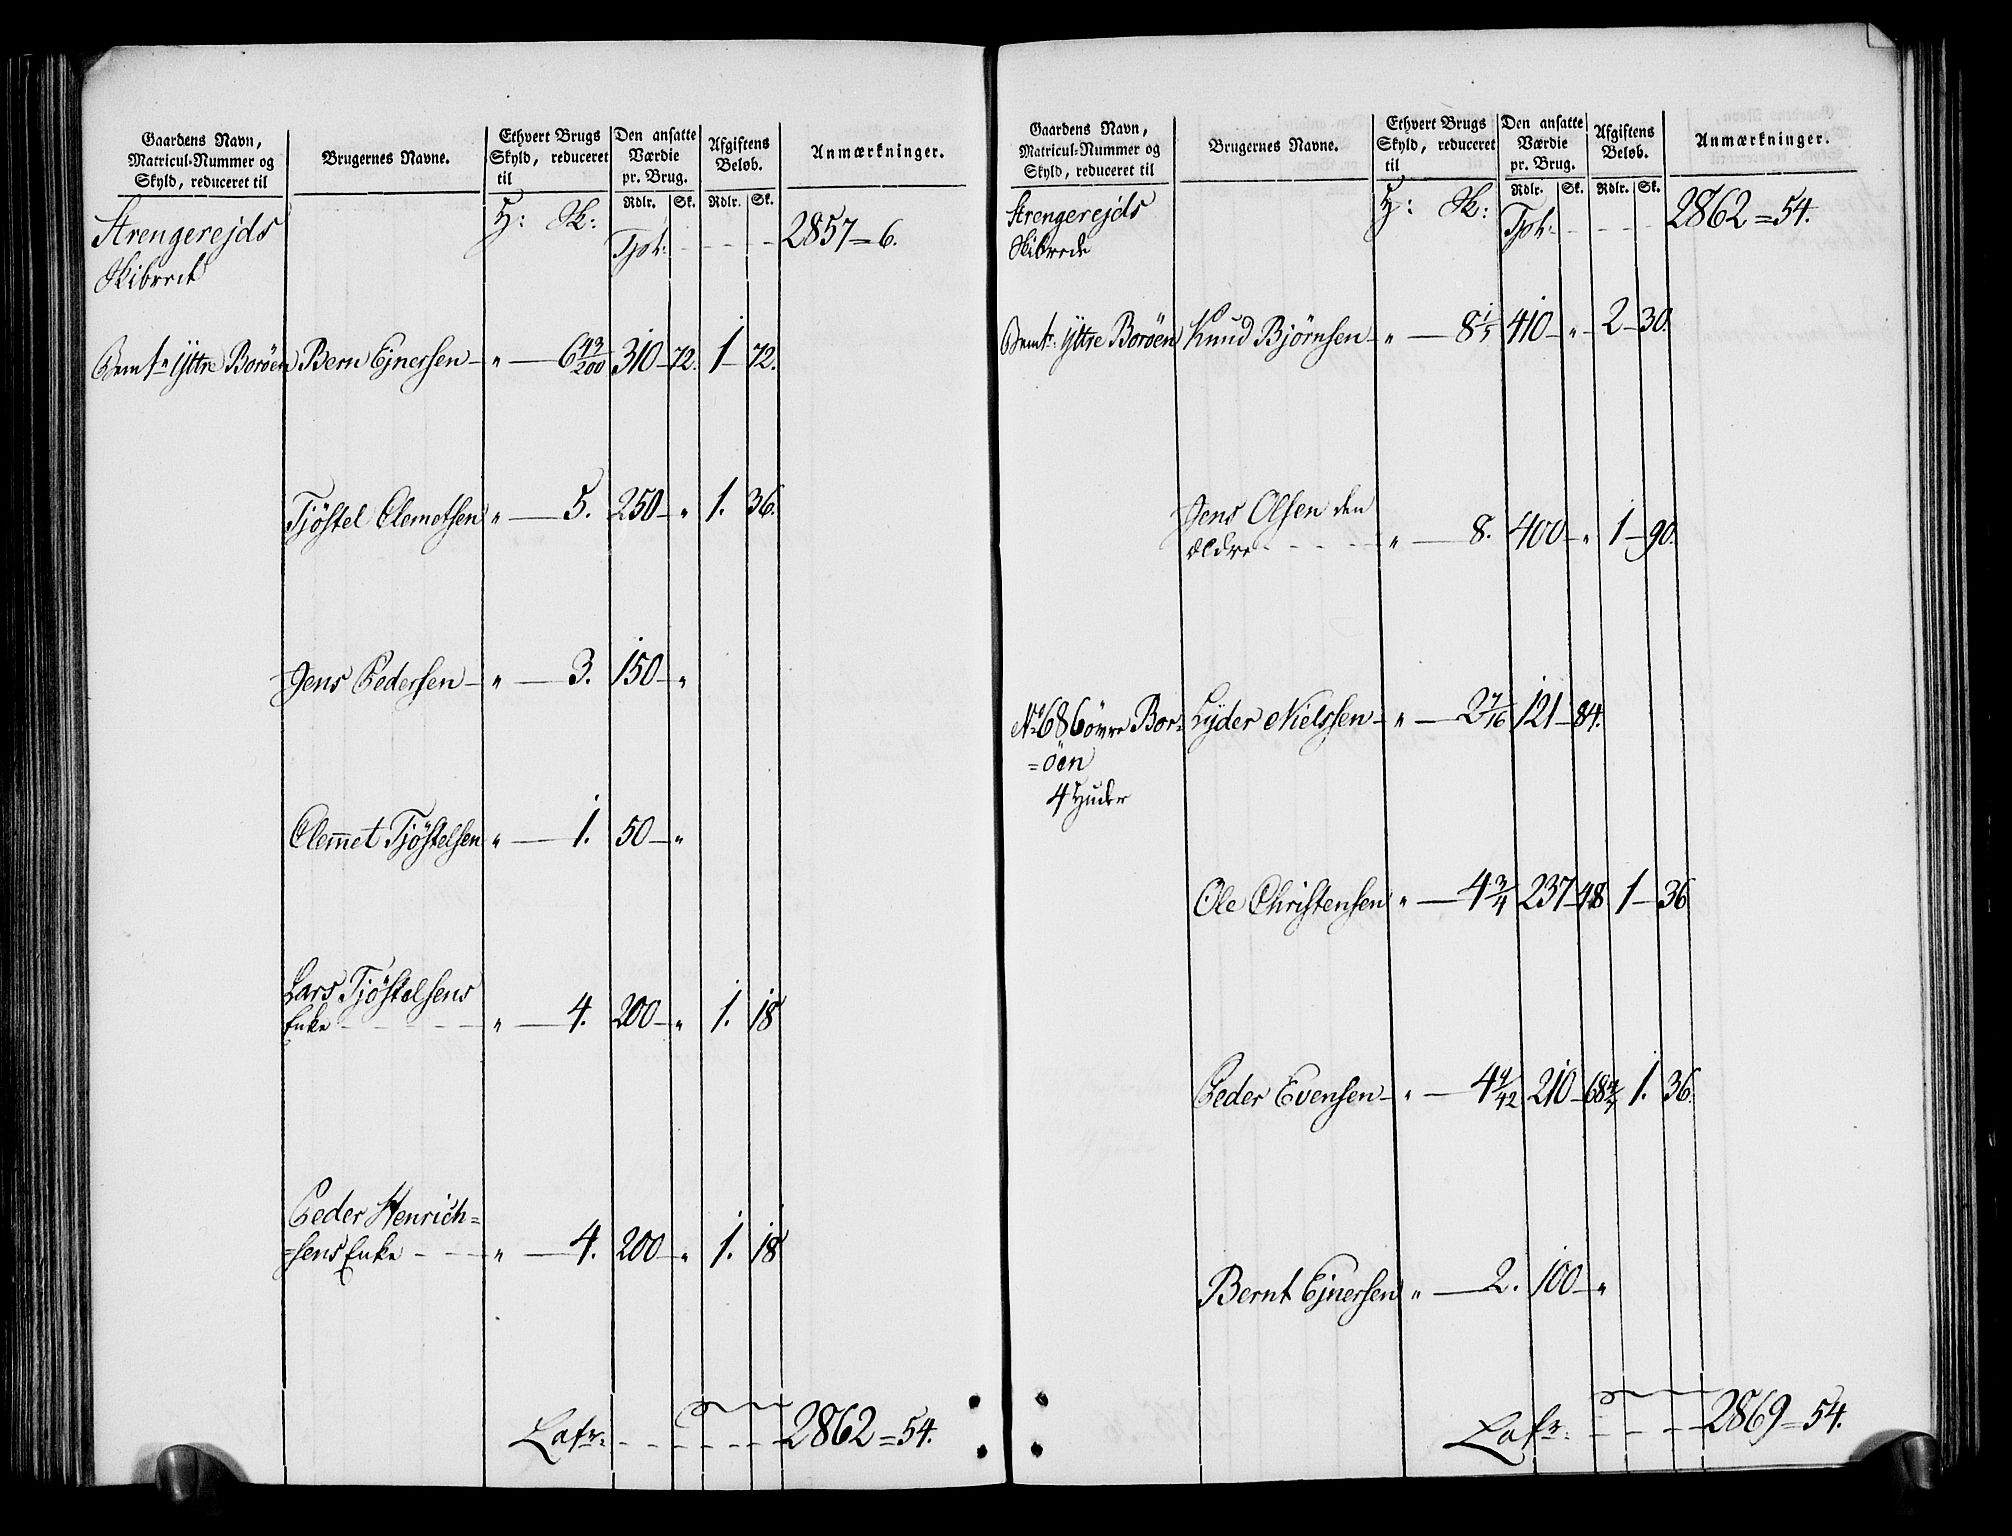 Gaardens Navn,
Matricul-Nummer og
Skyld, reduceret til
Brugernes Navne.
Ethvert Brugs
Skyld, reduceret
til
Den ansatte
Værdie
pr. Brug.
Afgiftens
Beløb.
Anmærkninger.
Rdlr. Sk. Rdlr. Sk.
Strengerejds H: Sk: 2857=6.
Skibrede
Tpt:
Bemte Yttre Boröen Bern Ejnersen " 6 43/200 310 72. 1 72.
Tjöstel Clemetsen " 5. 250 " 1. 36.
Jens Pedersen " 3. 150 "
Clemmet Tjöstelsen " 1. 50 "
Lars Tjöstelsens
Enke " 4. 200 " 1. 18
Peder Henrich=
=sens Enke " 4. 200 " 1. 18
Lafr: 2862=54.
Gaardens Navn,
Matricul-Nummer og
Skyld, reduceret til
Brugernes Navne.
Ethvert Brugs
Skyld, reduceret
til
Den ansatte
Værdie
pr. Brug.
Afgiftens
Beløb.
Anmærkninger.
Rdlr. Sk. Rdlr. Sk.
Strengerejds H: Sk: 2862=54.
Skibrede
Tpt:
Bemte: Yttre Boröen Knud Björnsen " 8 1/5 410 " 2 30.
Jens Olsen den
ældre " 8. 400 " 1 90.
No 686 övre Bor= Lyder Nielssen " 2 7/16 121 84.
=öen
4 Huder
Ole Christensen " 4 3/4 237 48 1 36
Peder Evensen " 4 9/42 210 68 4/7 1. 36.
Bernt Ejnersen " 2. 100 "
Lafr: 2869=54.